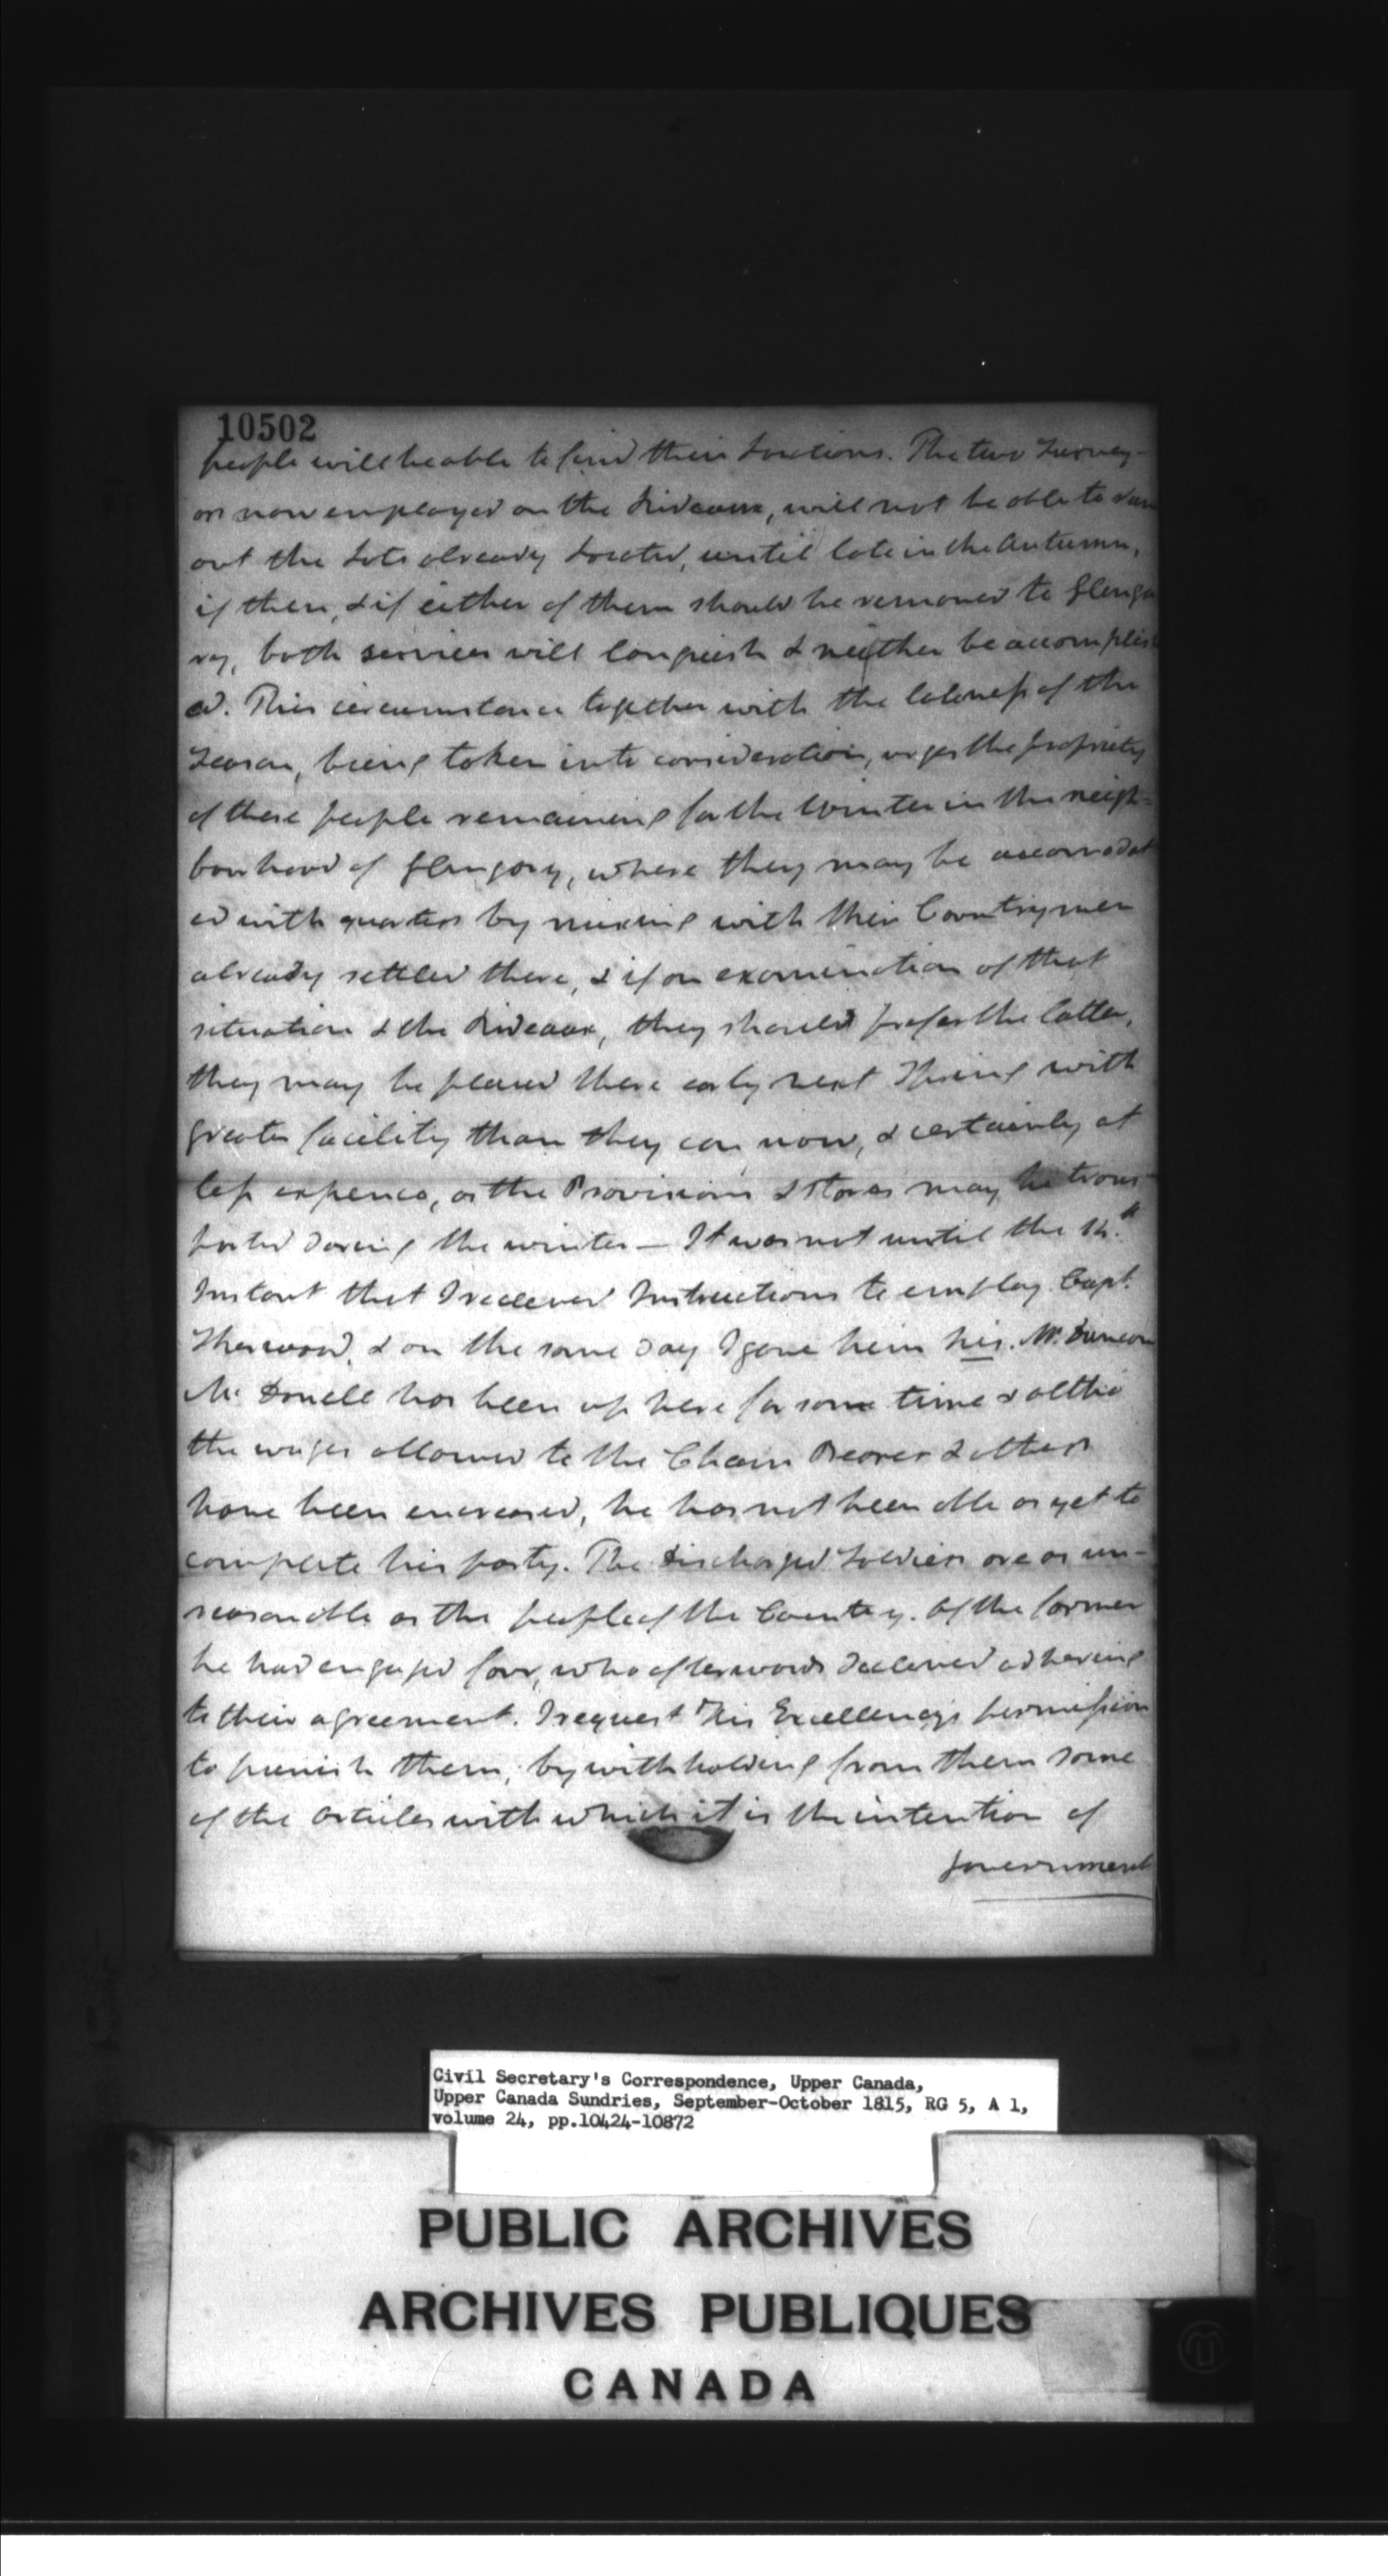 10502
people will be able to find their Locations. The two Survey-
ors now employed on the Rideaux, will not be able to run
out the Lots already Located, until late in the Autumn,
if then, & if either of them should be removed to Glenga
ry, both services will languish & neither be accomplish
ed. This circumstance together with the lateness of the
Season, being taken into consideration, urges the propriety
of these people remaining for the Winter in the neigh-
bourhood of Glengary, where they may be accomodat
ed with quarters by mixing with their Countrymen
already settled there, & if on examination of that
situation & the Rideaux, they should prefer the latter,
they may be placed there early next Spring with
greater facility than they can now, & certainly at
less expence, as the Provisions & Stores may be trans-
ported during the winter — It was not until the 14.th
Instant that I received Instructions to employ Capt.
Sherwood, & on the same day I gave him his. Mr. Duncan
Mc Donell has been up here for some time & altho
the wages allowed to the Chain Bearer & others
have been encreased, he has not been able as yet to
complete his party. The Discharged Soldiers are as un-
reasonable as the people of the Country. Of the former
he had engaged four, who afterwards declined adhering
to their agreement. I request His Excellency's permission
to punish them, by withholding from them some
of the Articles with which it is the intention of
Government
Civil Secretary's Correspondence, Upper Canada,
Upper Canada Sundries, September-October 1815, RG 5, A 1,
volume 24, pp.10424-10872
PUBLIC ARCHIVES
ARCHIVES PUBLIQUES
CANADA